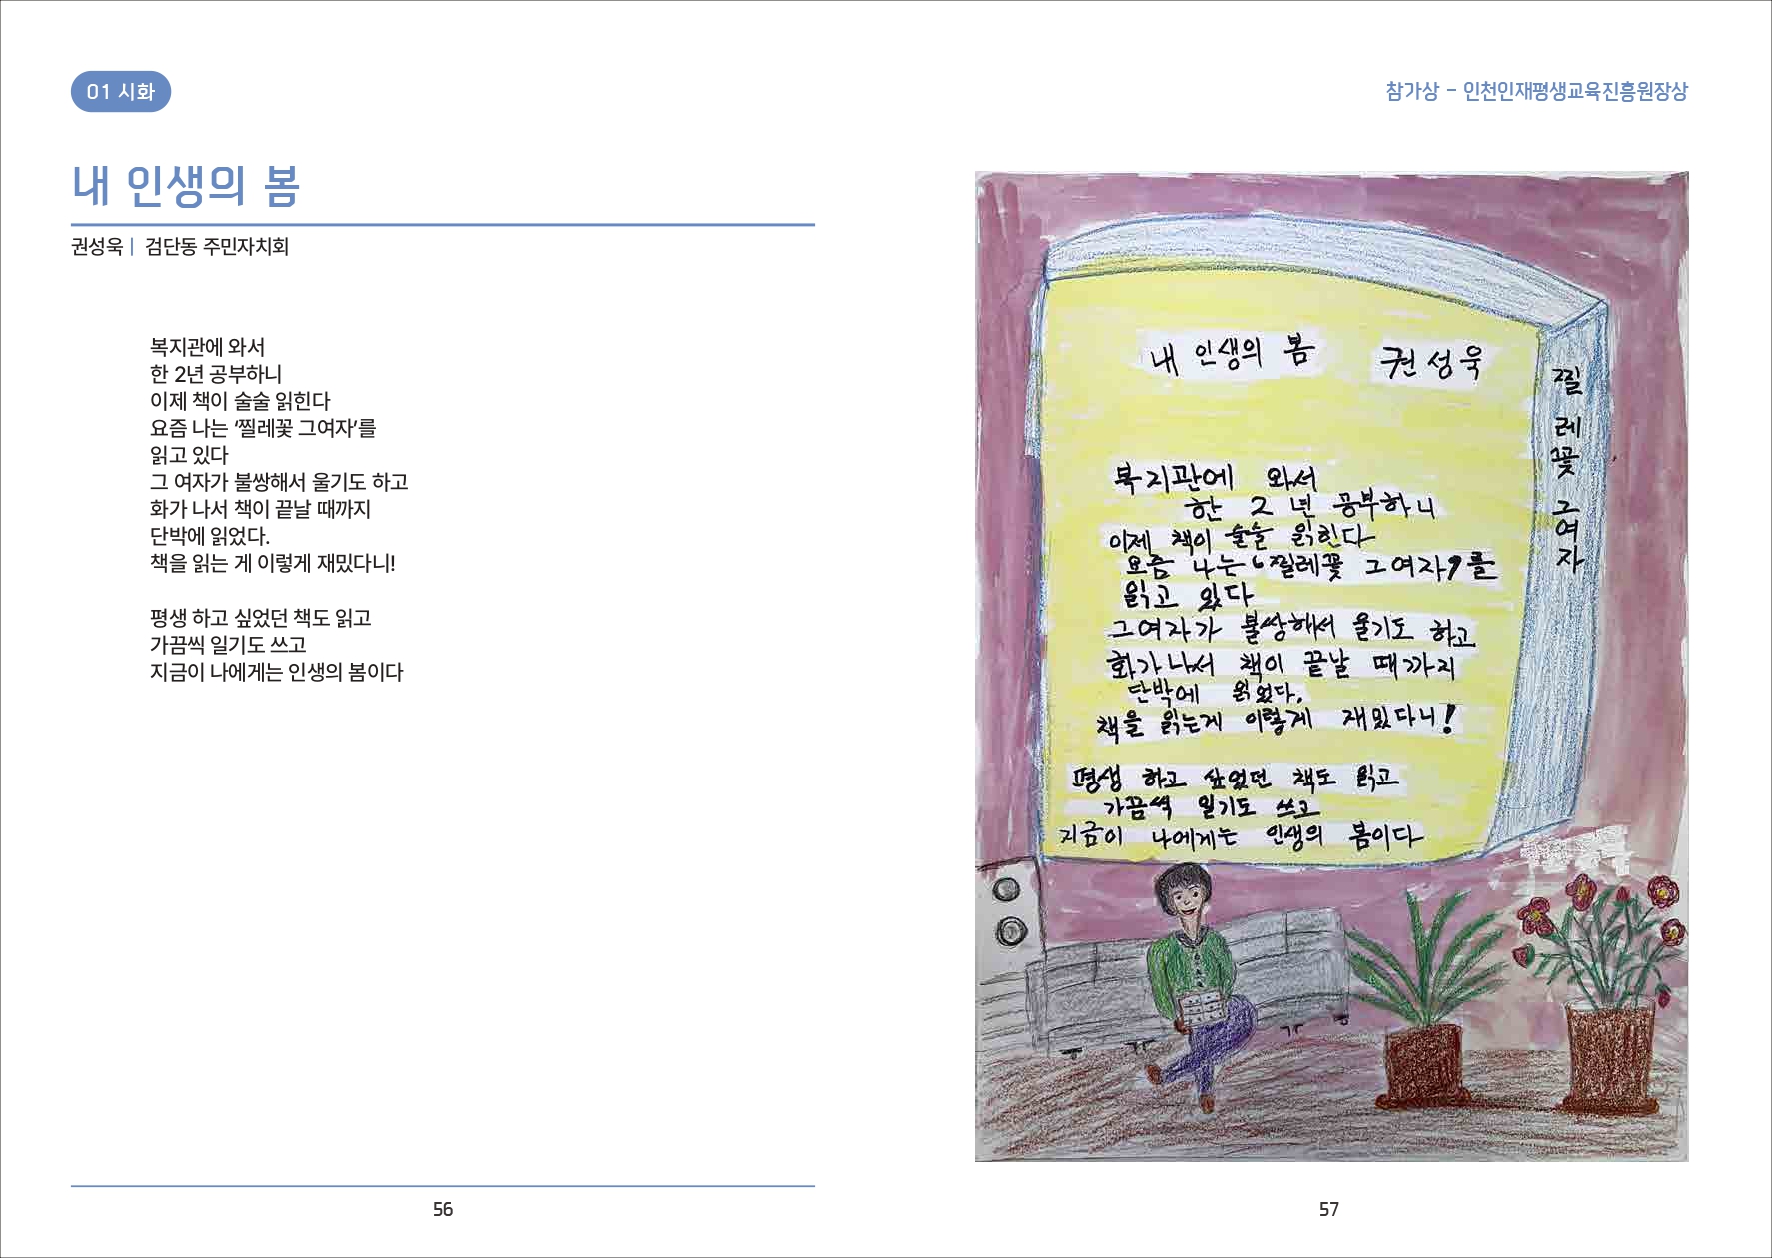 01 시화
참가상 - 인천인재평생교육진흥원장상
내 인생의 봄
권성욱 | 검단동 주민자치회
복지관에 와서
한 2년 공부하니
이제 책이 술술 읽힌다
요즘 나는 ‘찔레꽃 그여자’를
읽고 있다
그 여자가 불쌍해서 울기도 하고
화가 나서 책이 끝날 때까지
단박에 읽었다.
책을 읽는 게 이렇게 재밌다니!
평생 하고 싶었던 책도 읽고
가끔씩 일기도 쓰고
지금이 나에게는 인생의 봄이다
56
내 인생의 봄 권성욱
찔레꽃 그여자
복지관에 와서
한 2년 공부하니
이제 책이 술술 읽힌다
요즘 나는 ‘찔레꽃 그여자’를
읽고 있다
그여자가 불쌍해서 울기도 하고
화가 나서 책이 끝날 때까지
단박에 읽었다.
책을 읽는게 이렇게 재밌다니!
평생 하고 싶었던 책도 읽고
가끔씩 일기도 쓰고
지금이 나에게는 인생의 봄이다
57